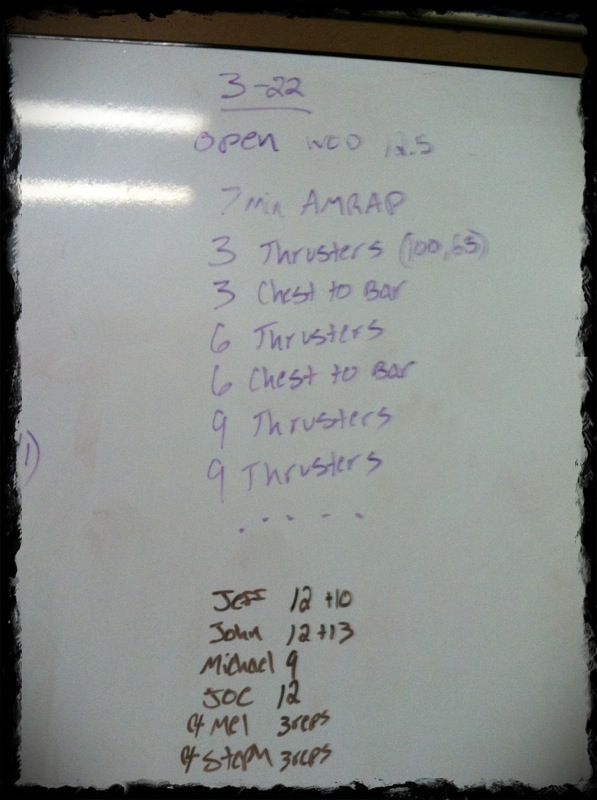 3-22
Open WOD 12.5
7 min AMRAP
3 Thrusters (100,65)
3 Chest to Bar
6 Thrusters
6 Chest to Bar
9 Thrusters
9 Thrusters
.....
Jeff 12 +10
John 12 +13
Michael 9
Joe 12
Mel 3reps
Steph 3reps
1)